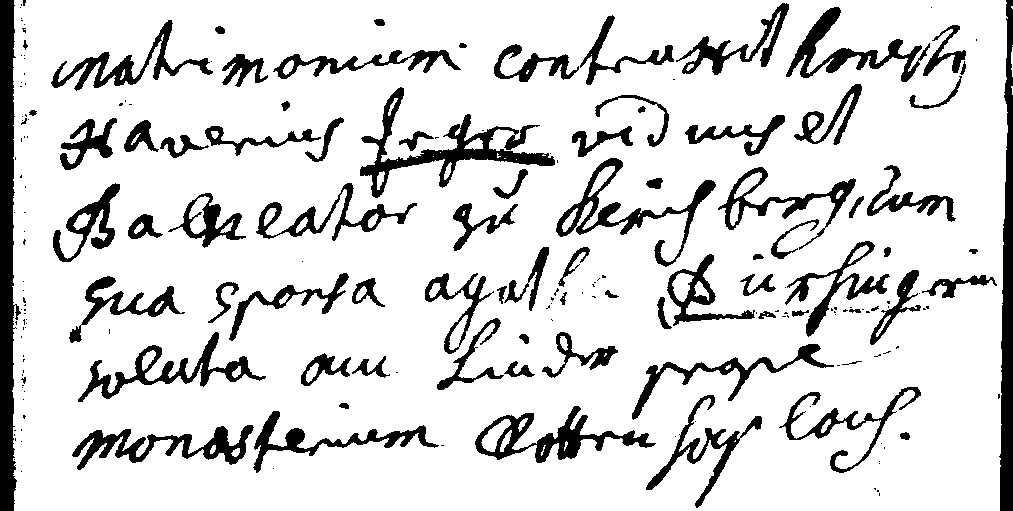 matrimonium contraxit honestg
Xaverius Jeger viduus et
Balneator zu Kirchberg, cum
sua sponsa agatha Bürhingerin
soluta am Linder prope
monasterium Rotten